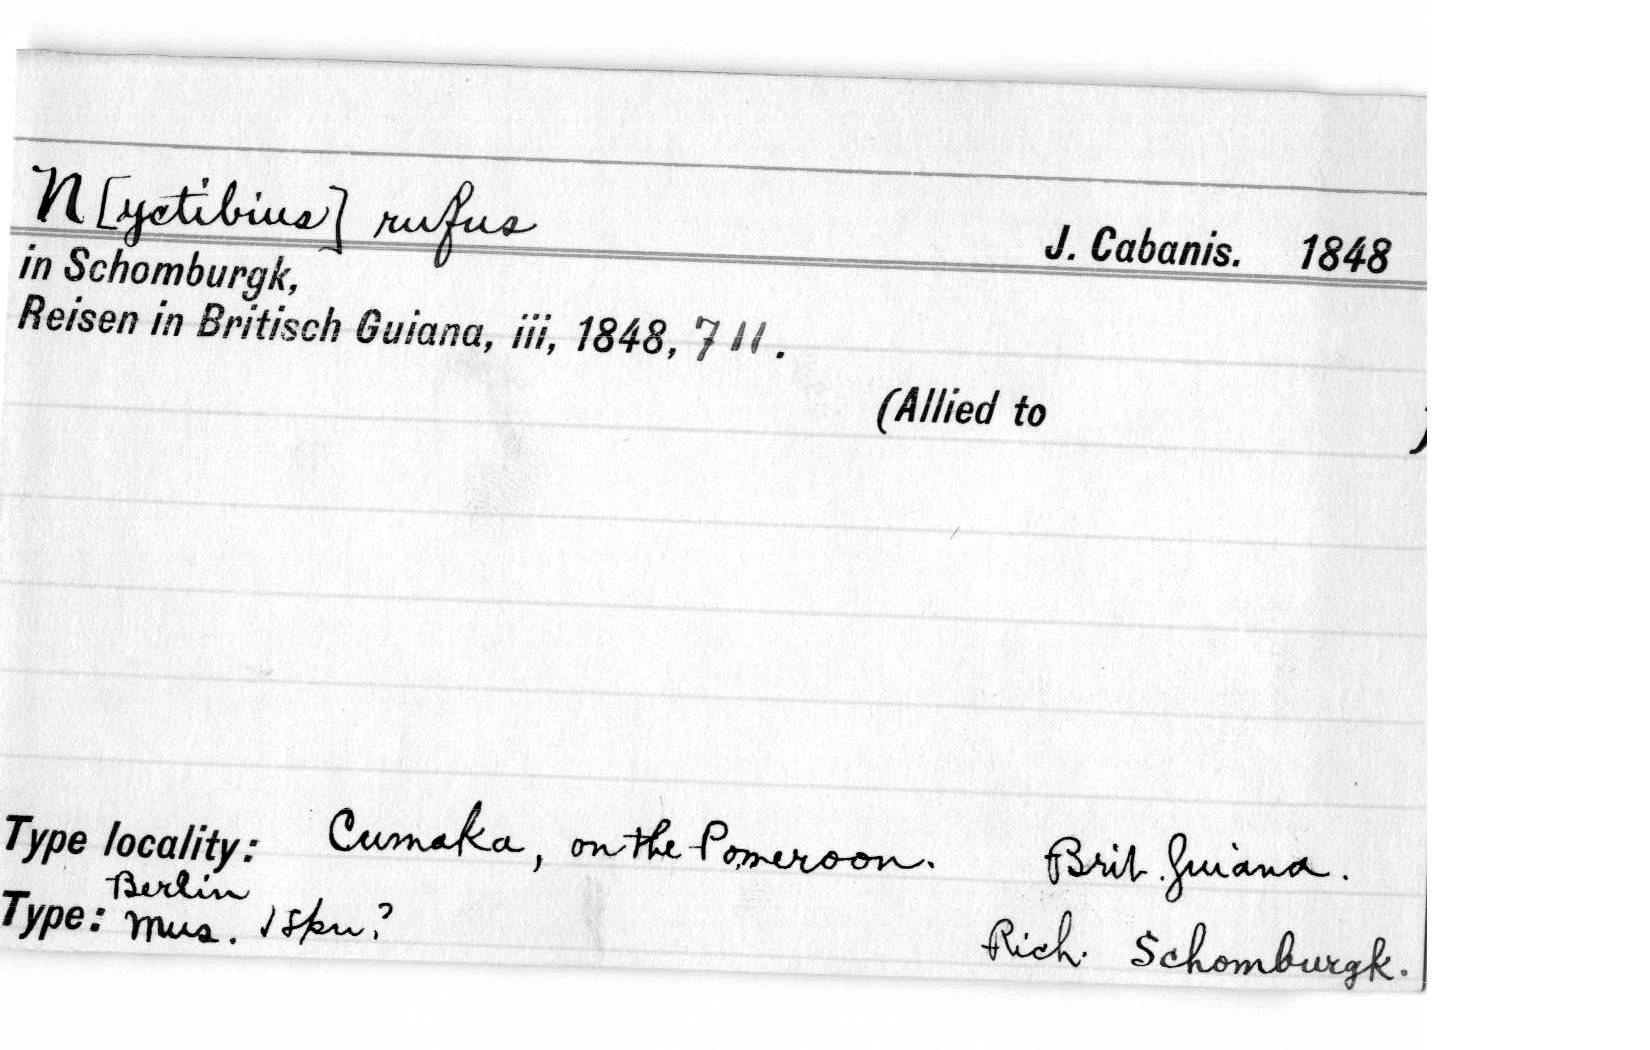 N[yctibius] rufus J. Cabanis. 1848
in Schomburgk,
Reisen in Britisch Guiana, iii, 1848, 711.
(Allied to )
Type locality: Cumaka, on the Pomeroon. Brit. Guiana.
Berlin
Type: Mus. 1 spn? Rich. Schomburgk.